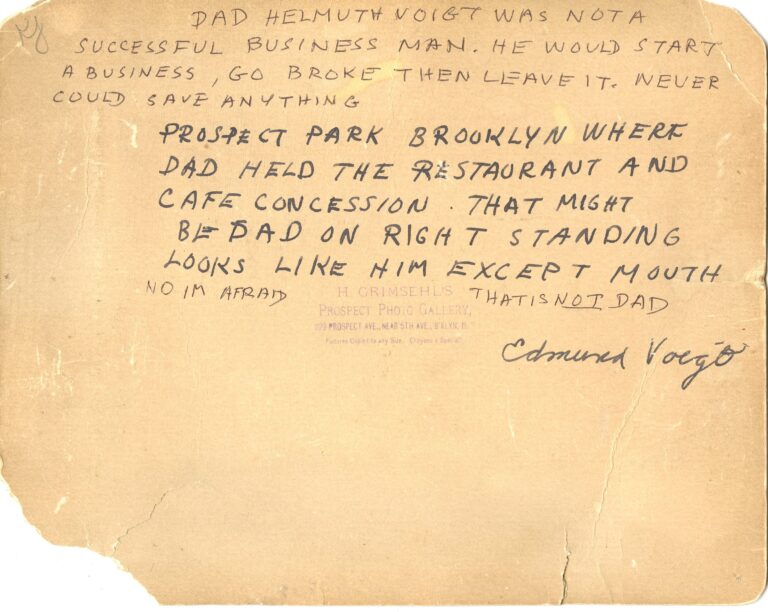 DAD HELMUTH VOIGT WAS NOT A
SUCCESSFUL BUSINESS MAN. HE WOULD START
A BUSINESS, GO BROKE THEN LEAVE IT. NEVER
COULD SAVE ANYTHING
PROSPECT PARK BROOKLYN WHERE
DAD HELD THE RESTAURANT AND
CAFE CONCESSION. THAT MIGHT
BE DAD ON RIGHT STANDING
LOOKS LIKE HIM EXCEPT MOUTH
NO IM AFRAD THAT IS NOT DAD
H. GRIMSEHL'S
PROSPECT PHOTO GALLERY,
PROSPECT AVE., NEAR 5TH AVE., B'KLYN,
to any Size.
Edmund Voigt